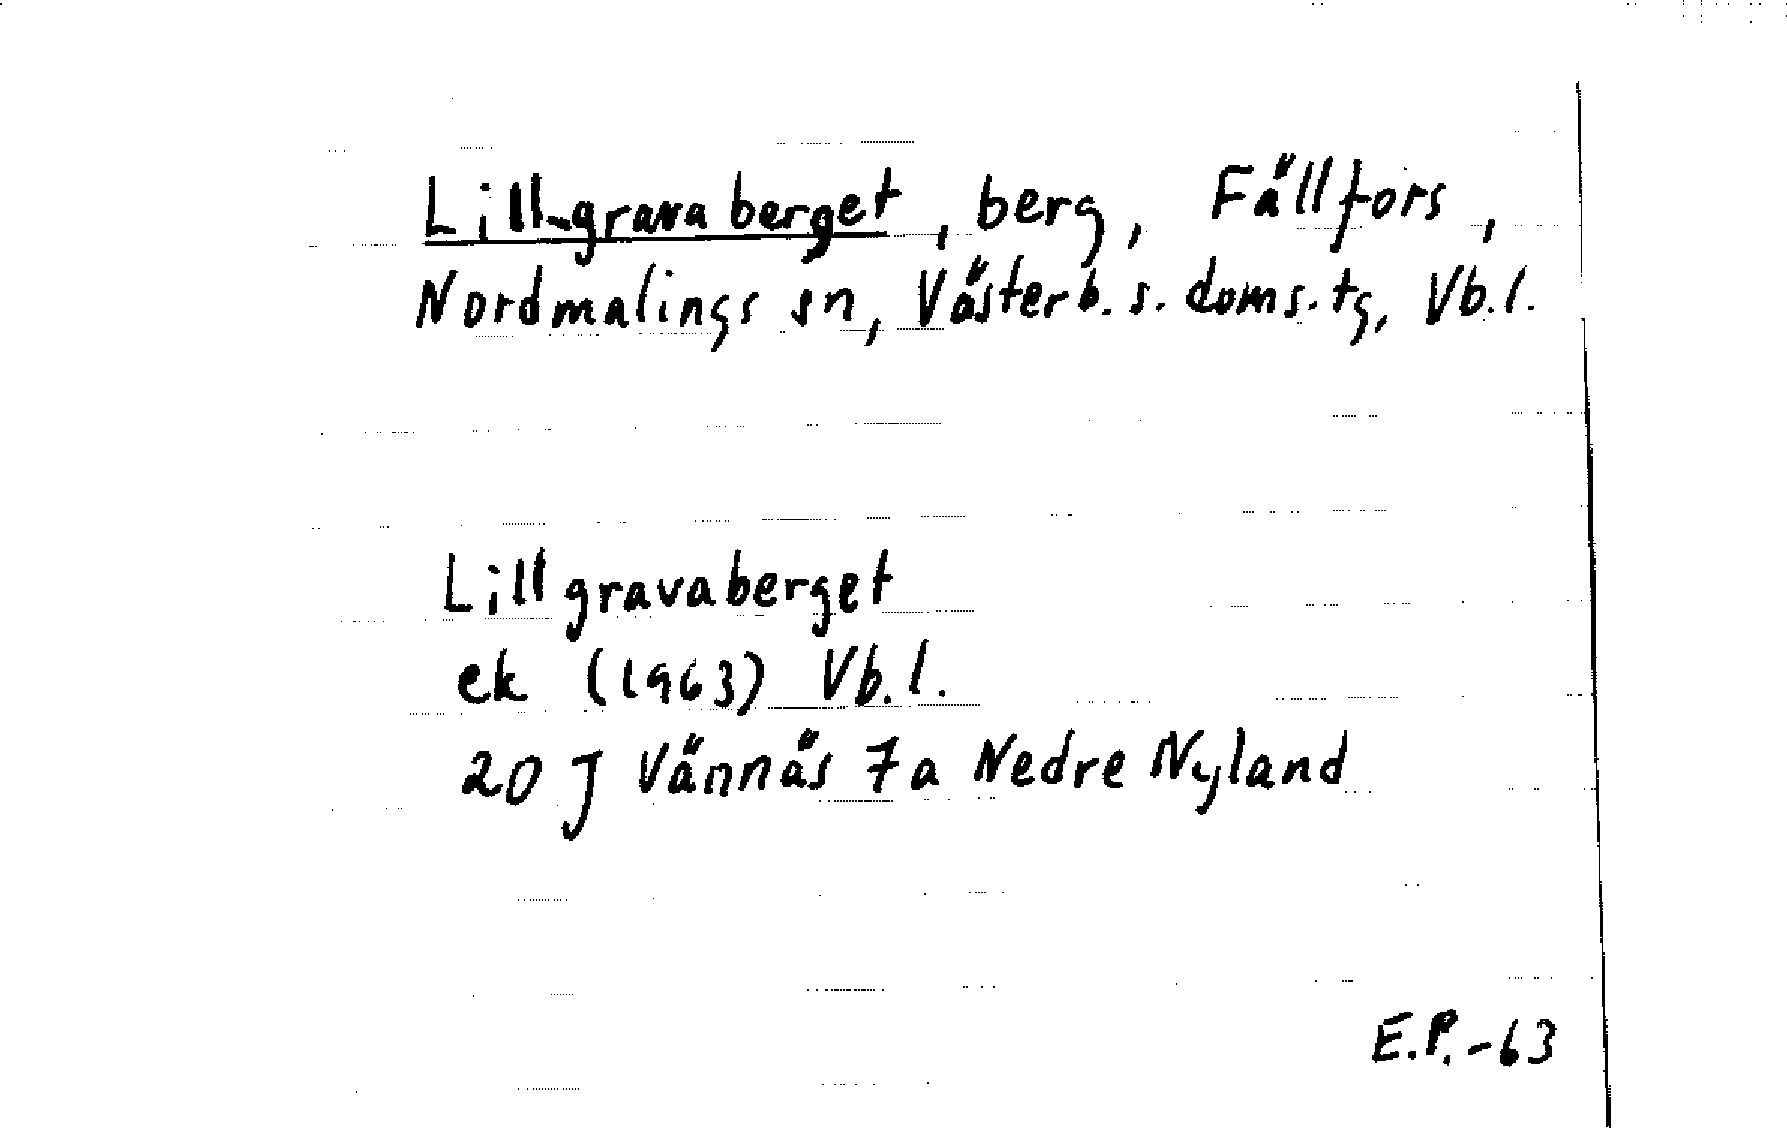 Lill-gravaberget, berg, Fällfors,
Nordmalings sn, Västerb. s. doms. tg, Vb.l.
Lillgravaberget
ek (1963) Vb.l.
20 J Vännäs 7a Nedre Nyland
E.P.-63